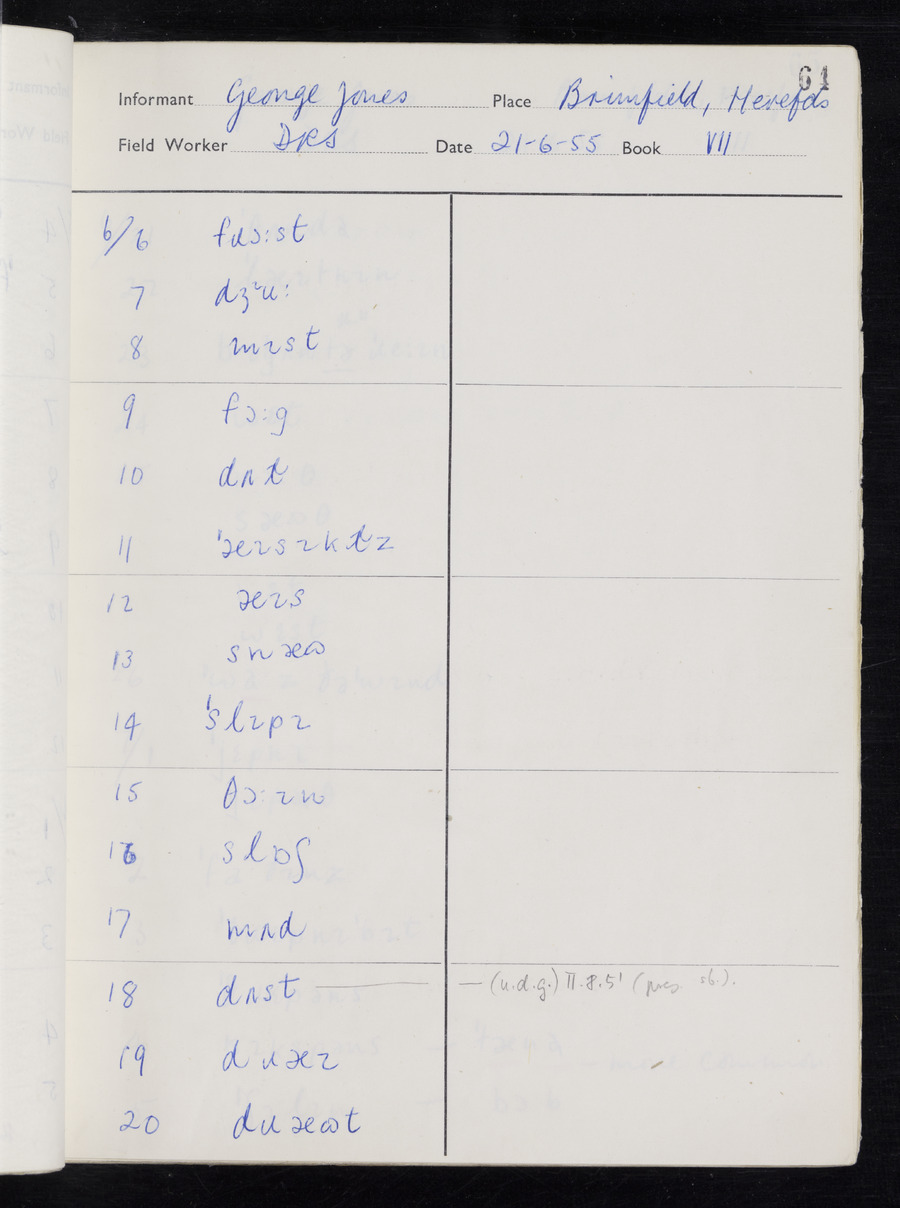 61
Informant George Jones Place Brimfield, Herefds
Field Worker DRS Date 21-6-55 Book VII
6/6 fɹɔ:st
7 dʒᶦu:
8 mɪst
9 fɔ:g
10 dʌɫ
11 ˈæɪsɪkɫz
12 æɪs
13 snæɷ
14 ˈslɪpɪ
15 θɔ:ɪn
16 slɒʃ
17 mʌd
18 dʌst — (u.d.g.) II.8.5¹ (pres. sb.).
19 dɹæɪ
20 dɹæɷt